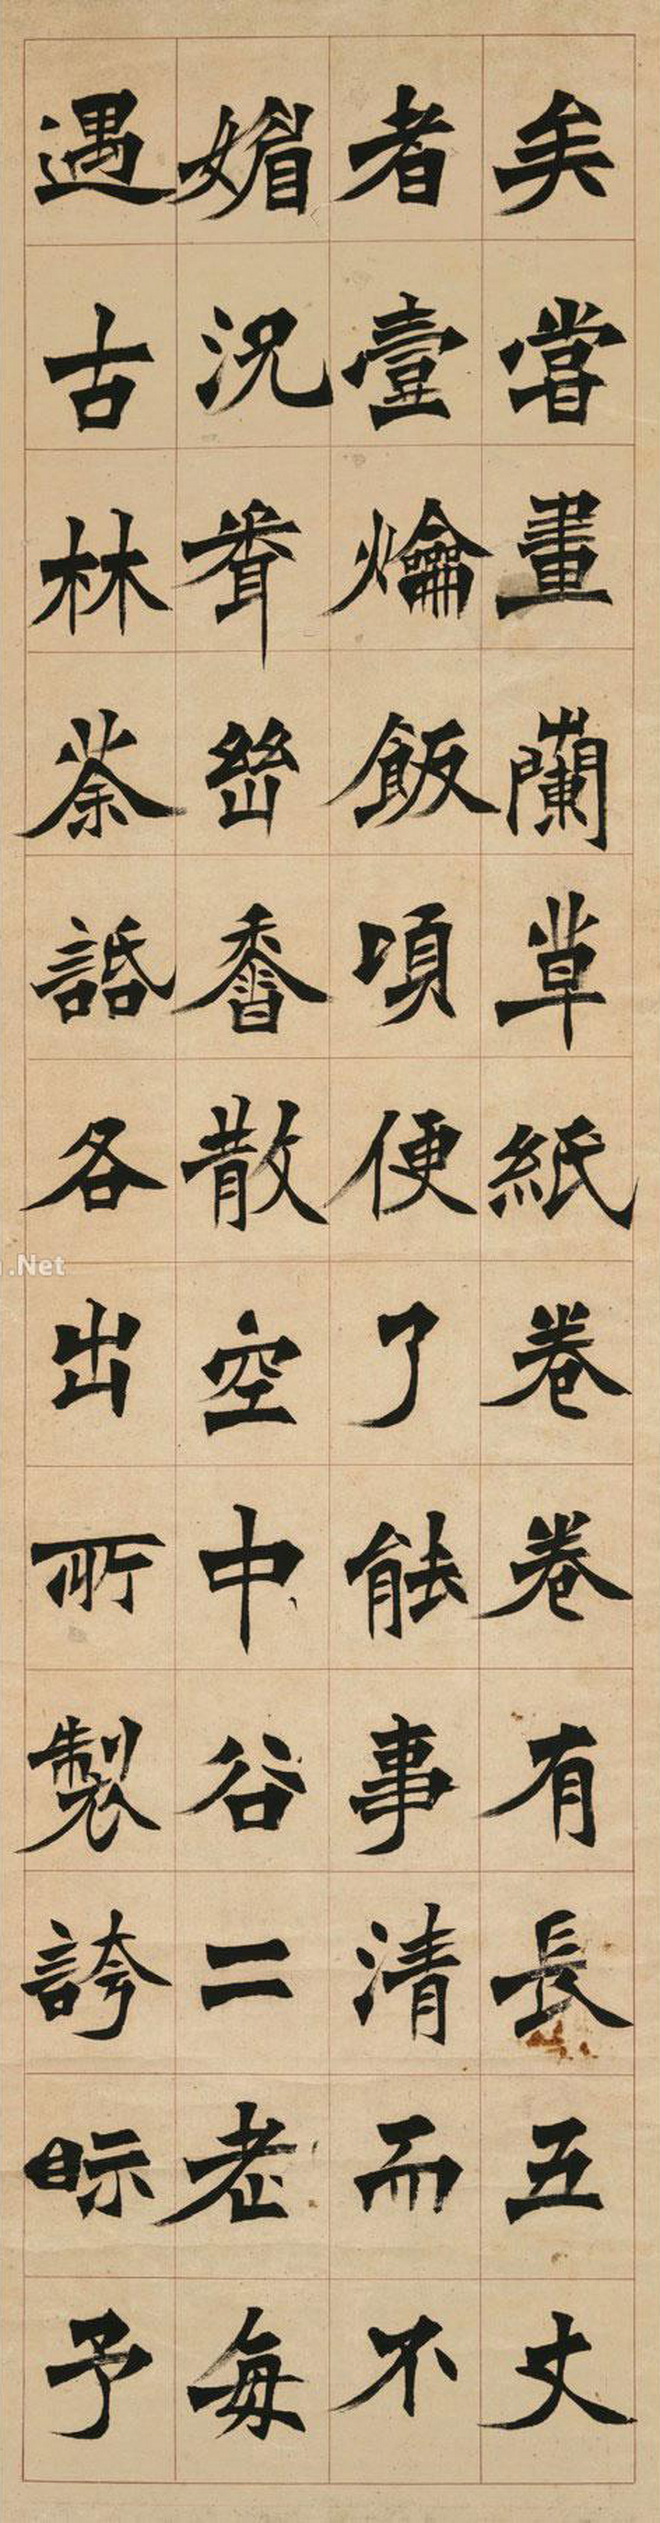 矣嘗畫蘭草紙卷卷有長五丈
者壹爚飯頃便了能事清而不
媚況幽香散空中谷二老每
遇古林茶話各出所製誇眎予
.Net